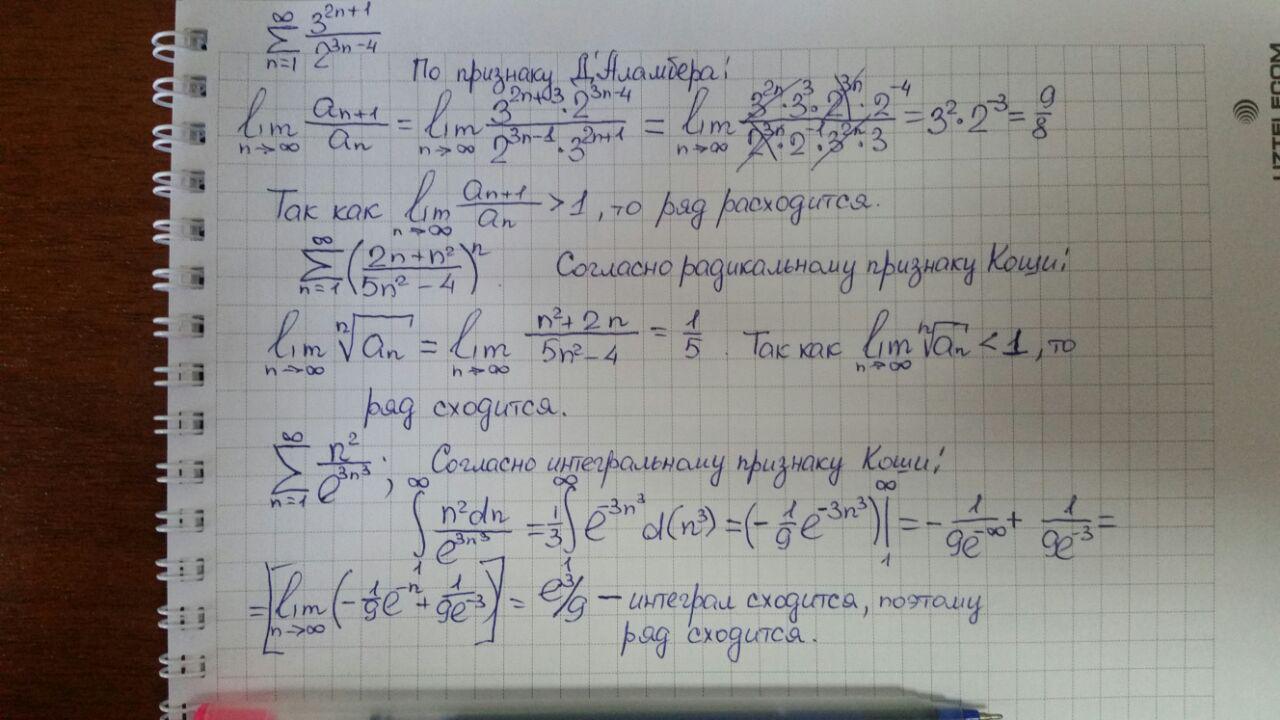 ∑_{n=1}^{∞} 3^{2n+1}/2^{3n-4} По признаку Д'Аламбера:
lim_{n→∞} a_{n+1}/a_n = lim_{n→∞} (3^{2n+3}·2^{3n-4})/(2^{3n-1}·3^{2n+1}) = lim_{n→∞} (3^{2n}·3^3·2^{3n}·2^{-4})/(2^{3n}·2^{-1}·3^{2n}·3) = 3^2·2^{-3} = 9/8
Так как lim_{n→∞} a_{n+1}/a_n > 1, то ряд расходится.
∑_{n=1}^{∞} ((2n+n^2)/(5n^2-4))^n. Согласно радикальному признаку Коши:
lim_{n→∞} ⁿ√a_n = lim_{n→∞} (n^2+2n)/(5n^2-4) = 1/5. Так как lim_{n→∞} ⁿ√a_n < 1, то
ряд сходится.
∑_{n=1}^{∞} n^2/e^{3n^3}; Согласно интегральному признаку Коши:
∫_1^∞ n^2dn/e^{3n^3} = 1/3 ∫_1^∞ e^{-3n^3} d(n^3) = (-1/9 e^{-3n^3})|_1^∞ = -1/(9e^{-∞}) + 1/(9e^{-3}) =
= [lim_{n→∞} (-1/9 e^{-n} + 1/(9e^{-3}))] = e^3/9 – интеграл сходится, поэтому
ряд сходится.
UZTELECOM